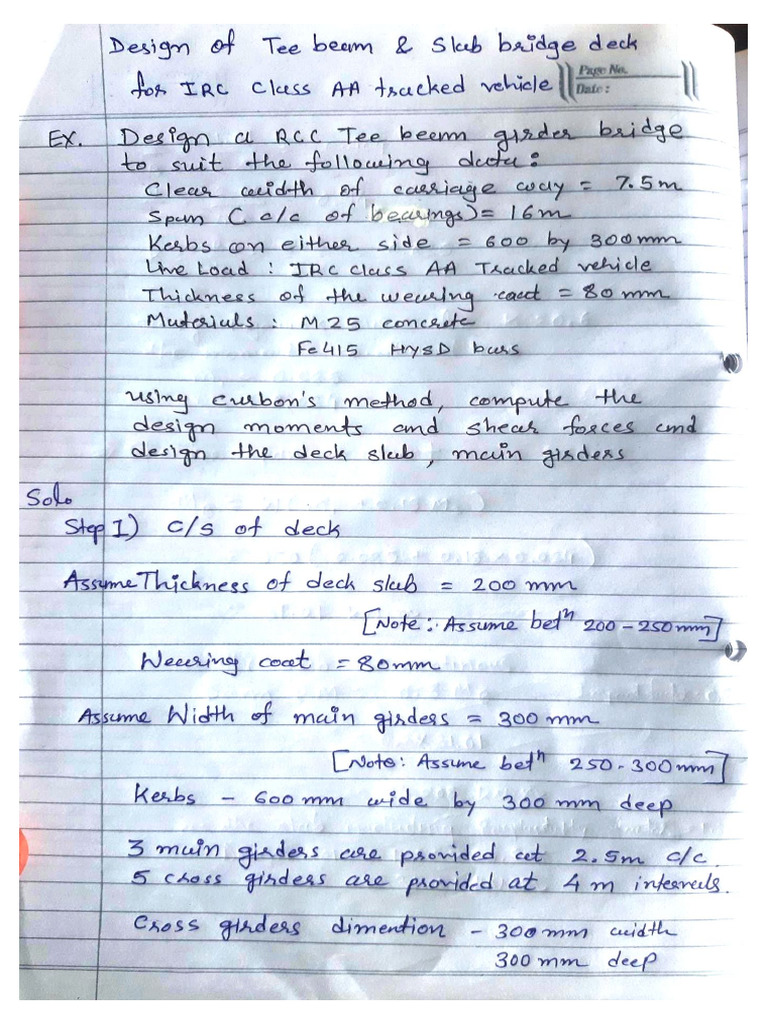 Design of Tee beam & Slab bridge deck
for IRC Class AA tracked vehicle
Page No.
Date:
Ex. Design a RCC Tee beam girder bridge
to suit the following data:
Clear width of carriage way = 7.5m
Span ( c/c of bearings) = 16m
Kerbs on either side = 600 by 300mm
Live Load : IRC Class AA Tracked vehicle
Thickness of the wearing coat = 80 mm
Materials : M 25 concrete
Fe415 HYSD bars
using curbon's method, compute the
design moments and shear forces and
design the deck slab, main girders
Solo
Step I) C/S of deck
Assume Thickness of deck slab = 200 mm
[Note: Assume betn 200 - 250mm]
Wearing coat = 80mm
Assume Width of main girders = 300 mm
[Note: Assume betn 250-300mm]
Kerbs - 600 mm wide by 300 mm deep
3 main girders are provided at 2.5m c/c.
5 cross girders are provided at 4 m intervals.
Cross girders dimention - 300 mm width
300 mm deep